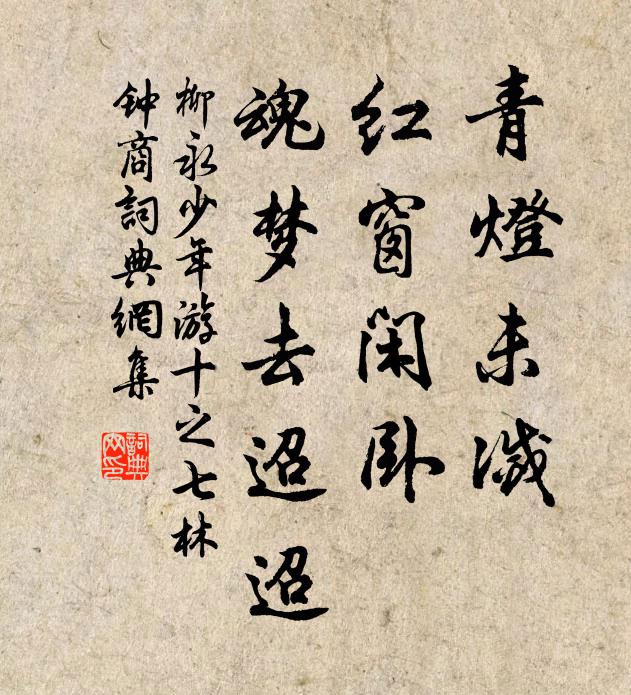 青燈未滅
紅窗閑臥
魂梦去迢迢
柳永少年游十之七林
钟商詞典網集
詞典網印